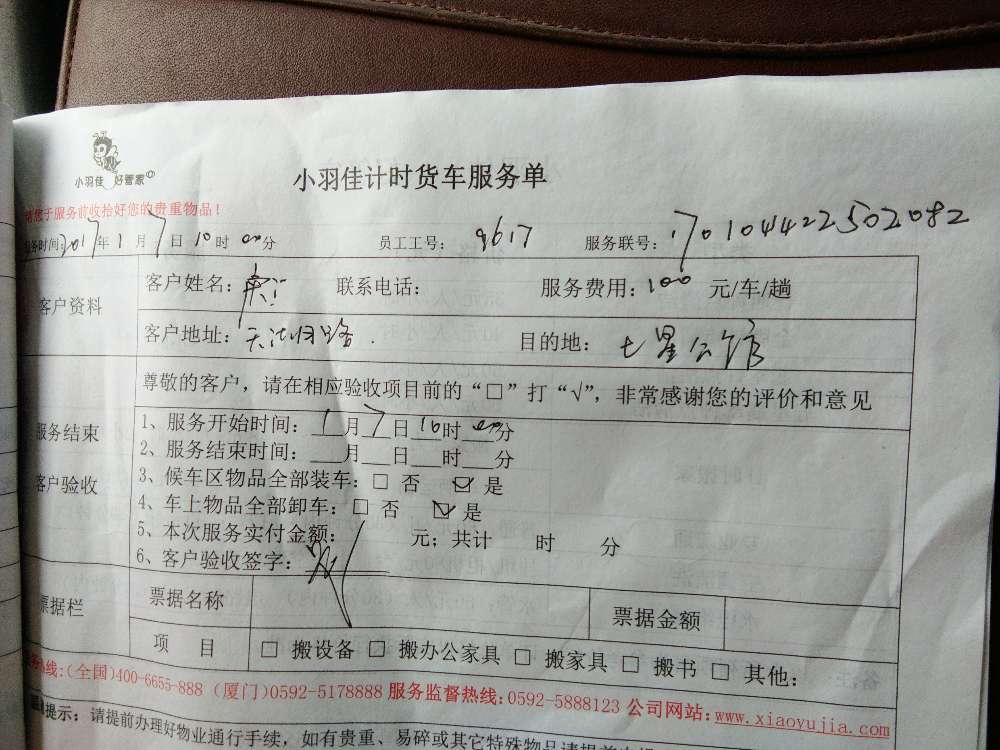 小羽佳 好管家
小羽佳计时货车服务单
请您于服务前收拾好您的贵重物品！
服务时间：2017年1月7日10时00分 员工工号： 9617 服务联号： 17010442250 2082
客户资料
客户姓名： 联系电话： 服务费用：100 元/车/趟
客户地址：天湖 路 目的地： 七星公馆
服务结束
客户验收
尊敬的客户，请在相应验收项目前的“□”打“√”，非常感谢您的评价和意见
1、服务开始时间：1月7日10时00分
2、服务结束时间：___月___日___时___分
3、候车区物品全部装车：□ 否 ☑ 是
4、车上物品全部卸车：□ 否 ☑ 是
5、本次服务实付金额： 元；共计 时 分
6、客户验收签字：
票据栏
票据名称 票据金额
项 目 □ 搬设备 □ 搬办公家具 □ 搬家具 □ 搬书 □ 其他：
热线：(全国)400-6655-888 (厦门)0592-5178888 服务监督热线：0592-5888123 公司网站：www.xiaoyujia.com
提示：请提前办理好物业通行手续，如有贵重、易碎或其它特殊物品请提前